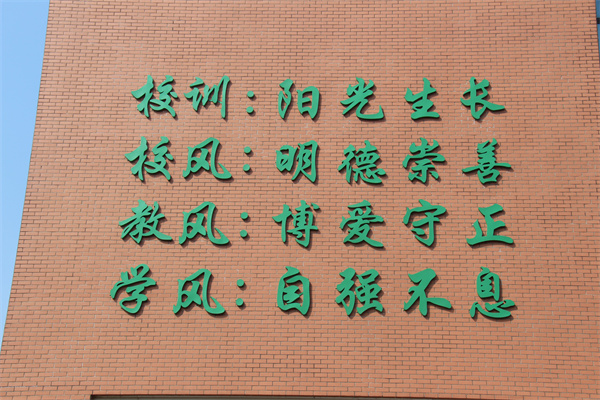 校训:阳光生长
校风:明德崇善
教风:博爱守正
学风:自强不息